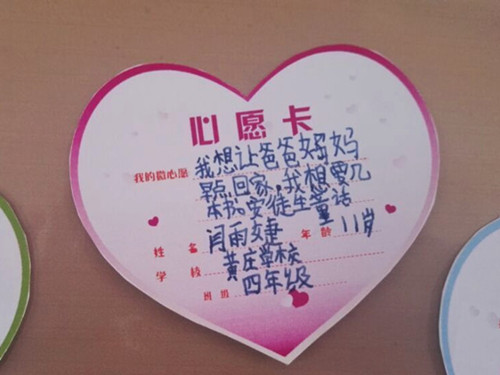 心愿卡
我的微心愿 我想让爸爸妈妈
早点回家,我想要几
本书。安徒生童话
姓名 闫雨婕 年龄 11岁
学校 黄庄学校
班级 四年级